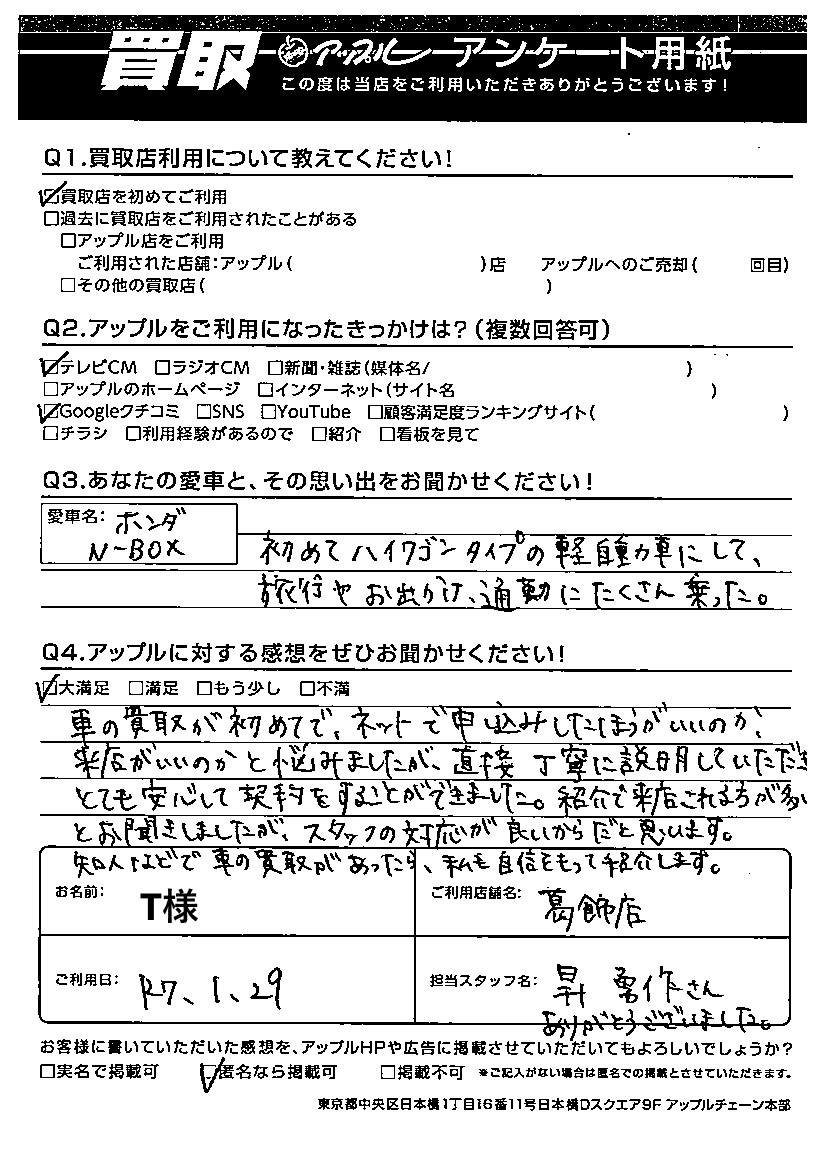 買取 アップル アンケート用紙
この度は当店をご利用いただきありがとうございます!
Q1.買取店利用について教えてください!
☑買取店を初めてご利用
□過去に買取店をご利用されたことがある
□アップル店をご利用
ご利用された店舗:アップル( )店 アップルへのご売却( 回目)
□その他の買取店( )
Q2.アップルをご利用になったきっかけは?(複数回答可)
☑テレビCM □ラジオCM □新聞・雑誌(媒体名/ )
□アップルのホームページ □インターネット(サイト名 )
☑Googleクチコミ □SNS □YouTube □顧客満足度ランキングサイト( )
□チラシ □利用経験があるので □紹介 □看板を見て
Q3.あなたの愛車と、その思い出をお聞かせください!
愛車名: ホンダ
N-BOX
初めてハイワゴンタイプの軽自動車にして、
旅行やお出かけ、通勤にたくさん乗った。
Q4.アップルに対する感想をぜひお聞かせください!
☑大満足 □満足 □もう少し □不満
車の買取が初めてで、ネットで申し込みしたほうがいいのか、
来店がいいのかと悩みましたが、直接丁寧に説明していただき
とても安心して契約をすることができました。紹介で来店される方が多い
とお聞きしましたが、スタッフの対応が良いからだと思います。
知人などで車の買取があったら、私も自信をもって紹介します。
お名前: T様
ご利用店舗名: 葛飾店
ご利用日: R7、1、29
担当スタッフ名: 昇 勇作さん
ありがとうございました。
お客様に書いていただいた感想を、アップルHPや広告に掲載させていただいてもよろしいでしょうか?
□実名で掲載可 ☑匿名なら掲載可 □掲載不可 ※ご記入がない場合は匿名での掲載とさせていただきます。
東京都中央区日本橋1丁目16番11号日本橋Dスクエア9F アップルチェーン本部